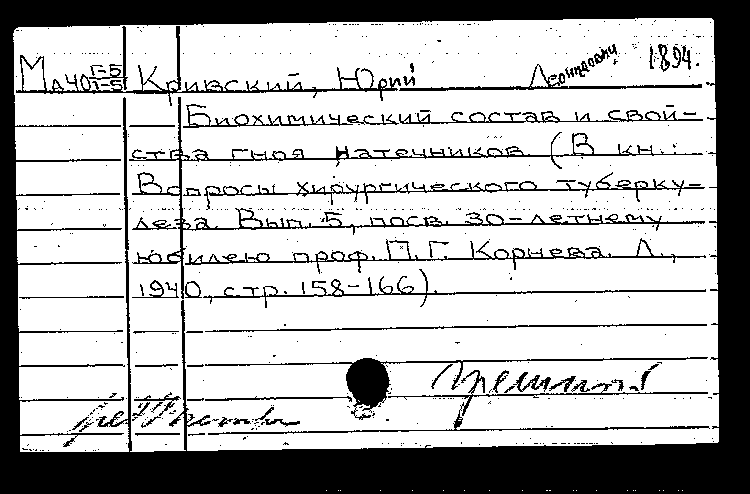 МД401 Г-5 1-5 Кривский, Юрий Леонидович 1894.
Биохимический состав и свой-
ства гноя натечников. (В кн.:
Вопросы хирургического туберку-
леза. Вып. 5, посв. 30-летнему
юбилею проф. П.Г. Корнева. Л.,
1940, стр. 158-166).